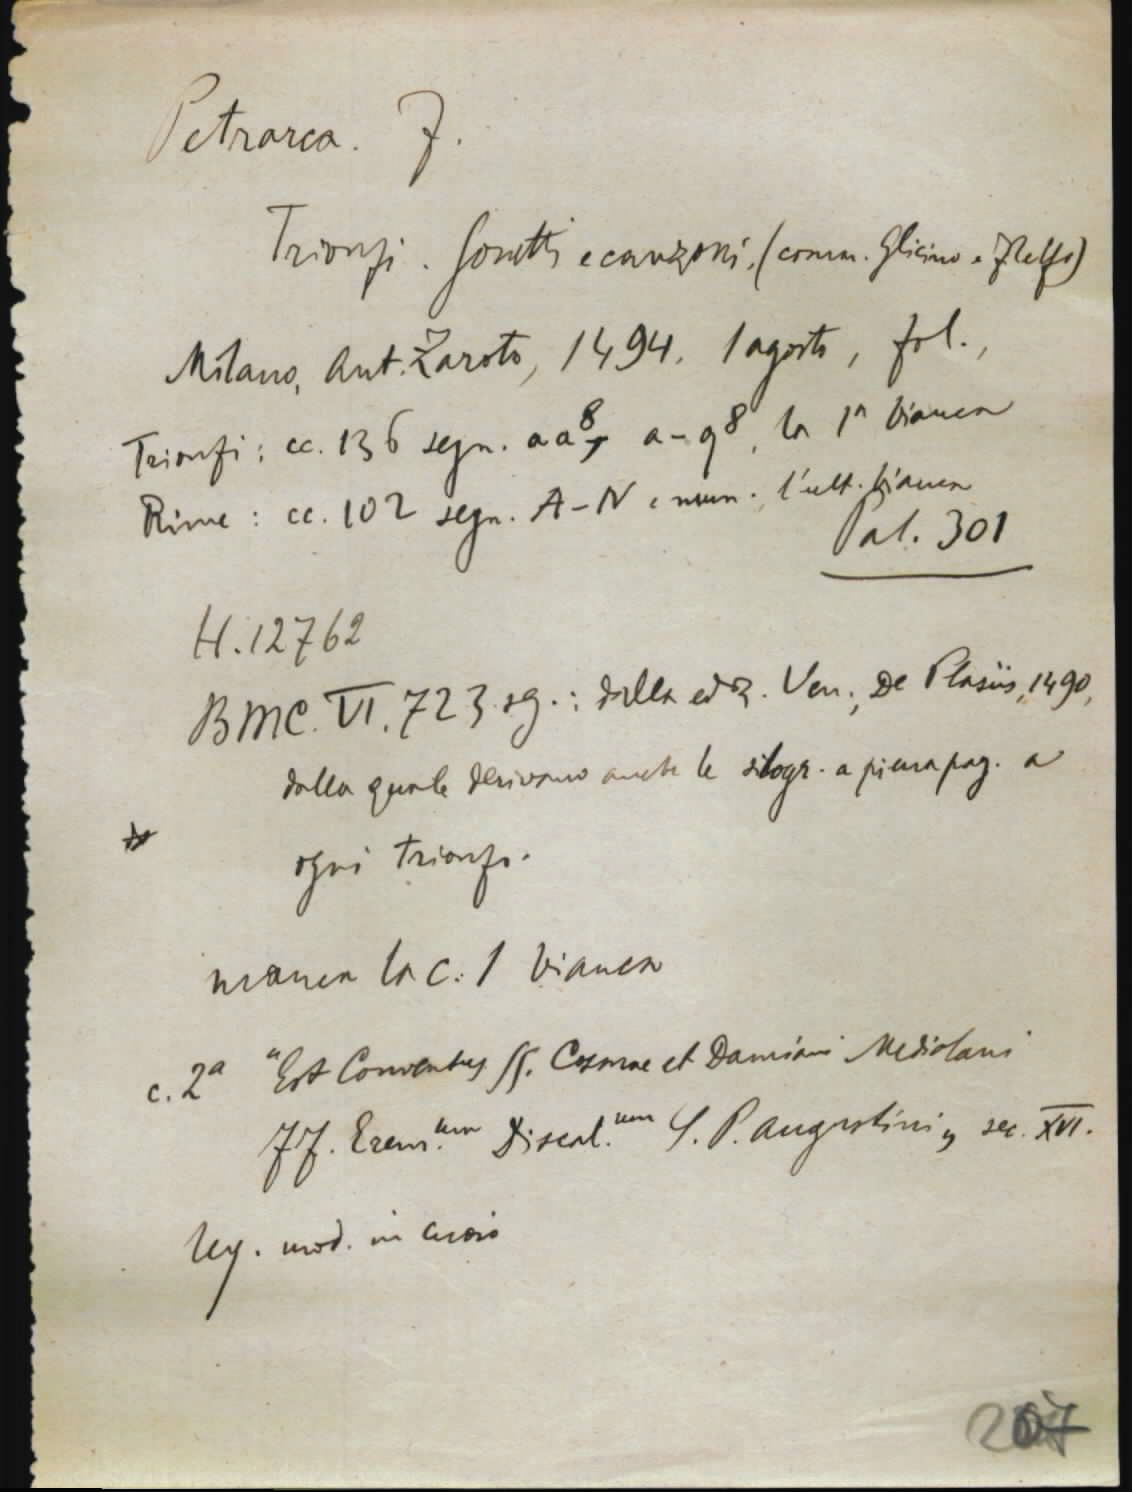 Petrarca. F.
Trionfi. Sonetti e canzoni. (comm. Glicino e Filelfo)
Milano, Ant. Zaroto, 1494. 1 agosto, fol.,
Trionfi: cc. 136 segn. aa8, a-q8, la 1a bianca
Rime: cc. 102 segn. A-N e num. l'ult. bianca
Pal. 301
H. 12762
BMC. VI. 723 sg.: dalla ediz. Ven., De Plasiis, 1490,
dalla quale derivano anche le silogr. a piena pag. a
ogni trionfo.
manca la c. 1 bianca
c. 2a "Est Conventus SS. Cosmae et Damiani Mediolani
FF. Erem.um Discal.um S. P. Augustini" sec. XVI.
leg. mod. in cuoio
207